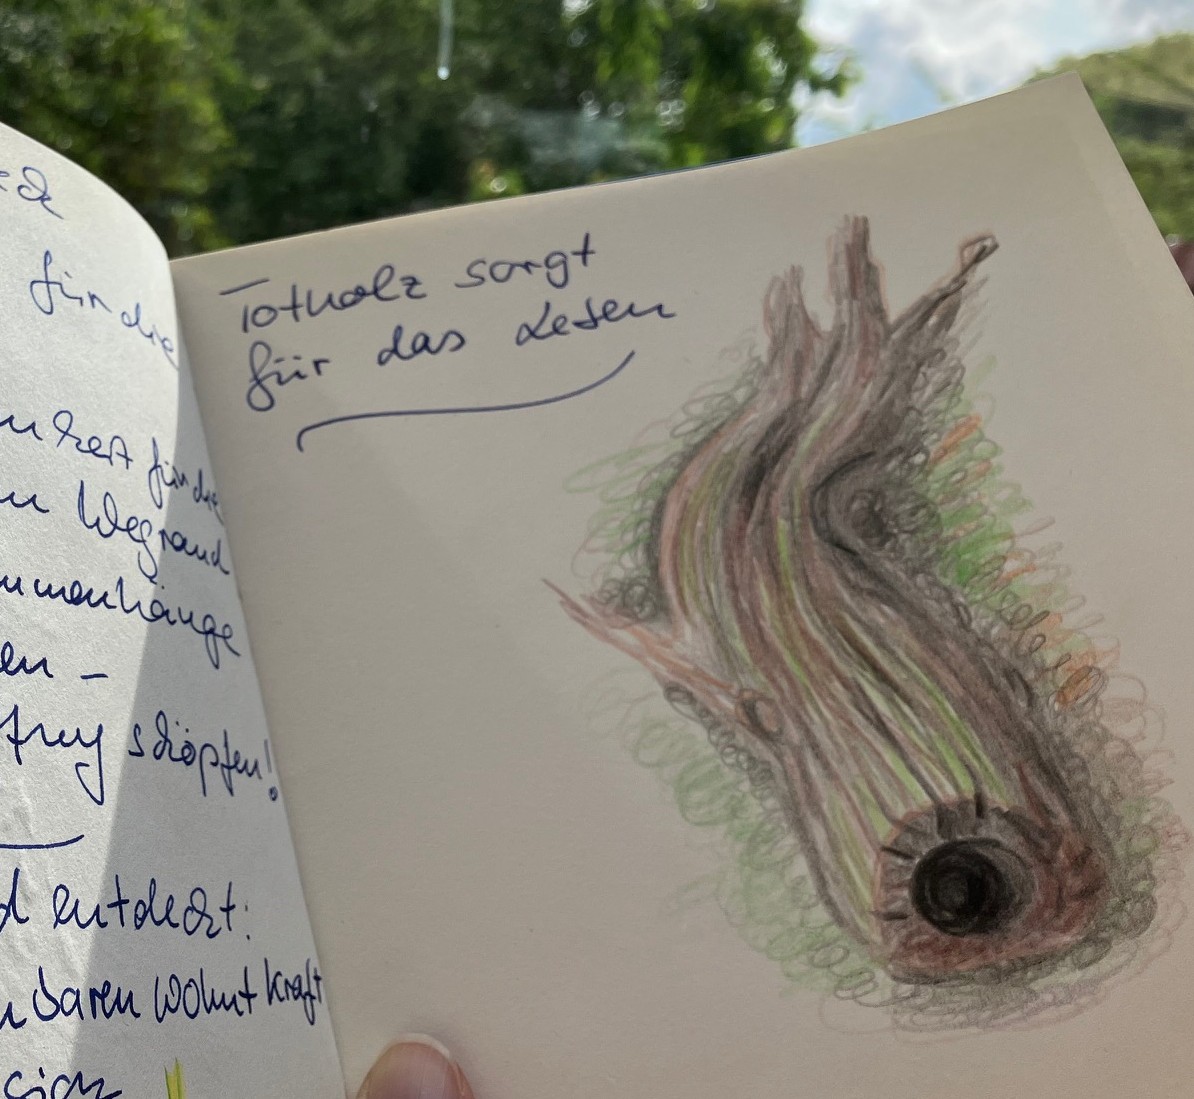 für die
für die
Wegrand
mmenhänge
en –
schöpfen!
d entdeckt:
baren wohnt Kraft
sich
Totholz sorgt
für das Leben